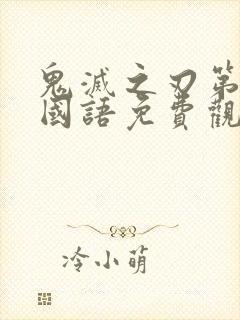 鬼滅之刃第
國語免費觀
冷小萌